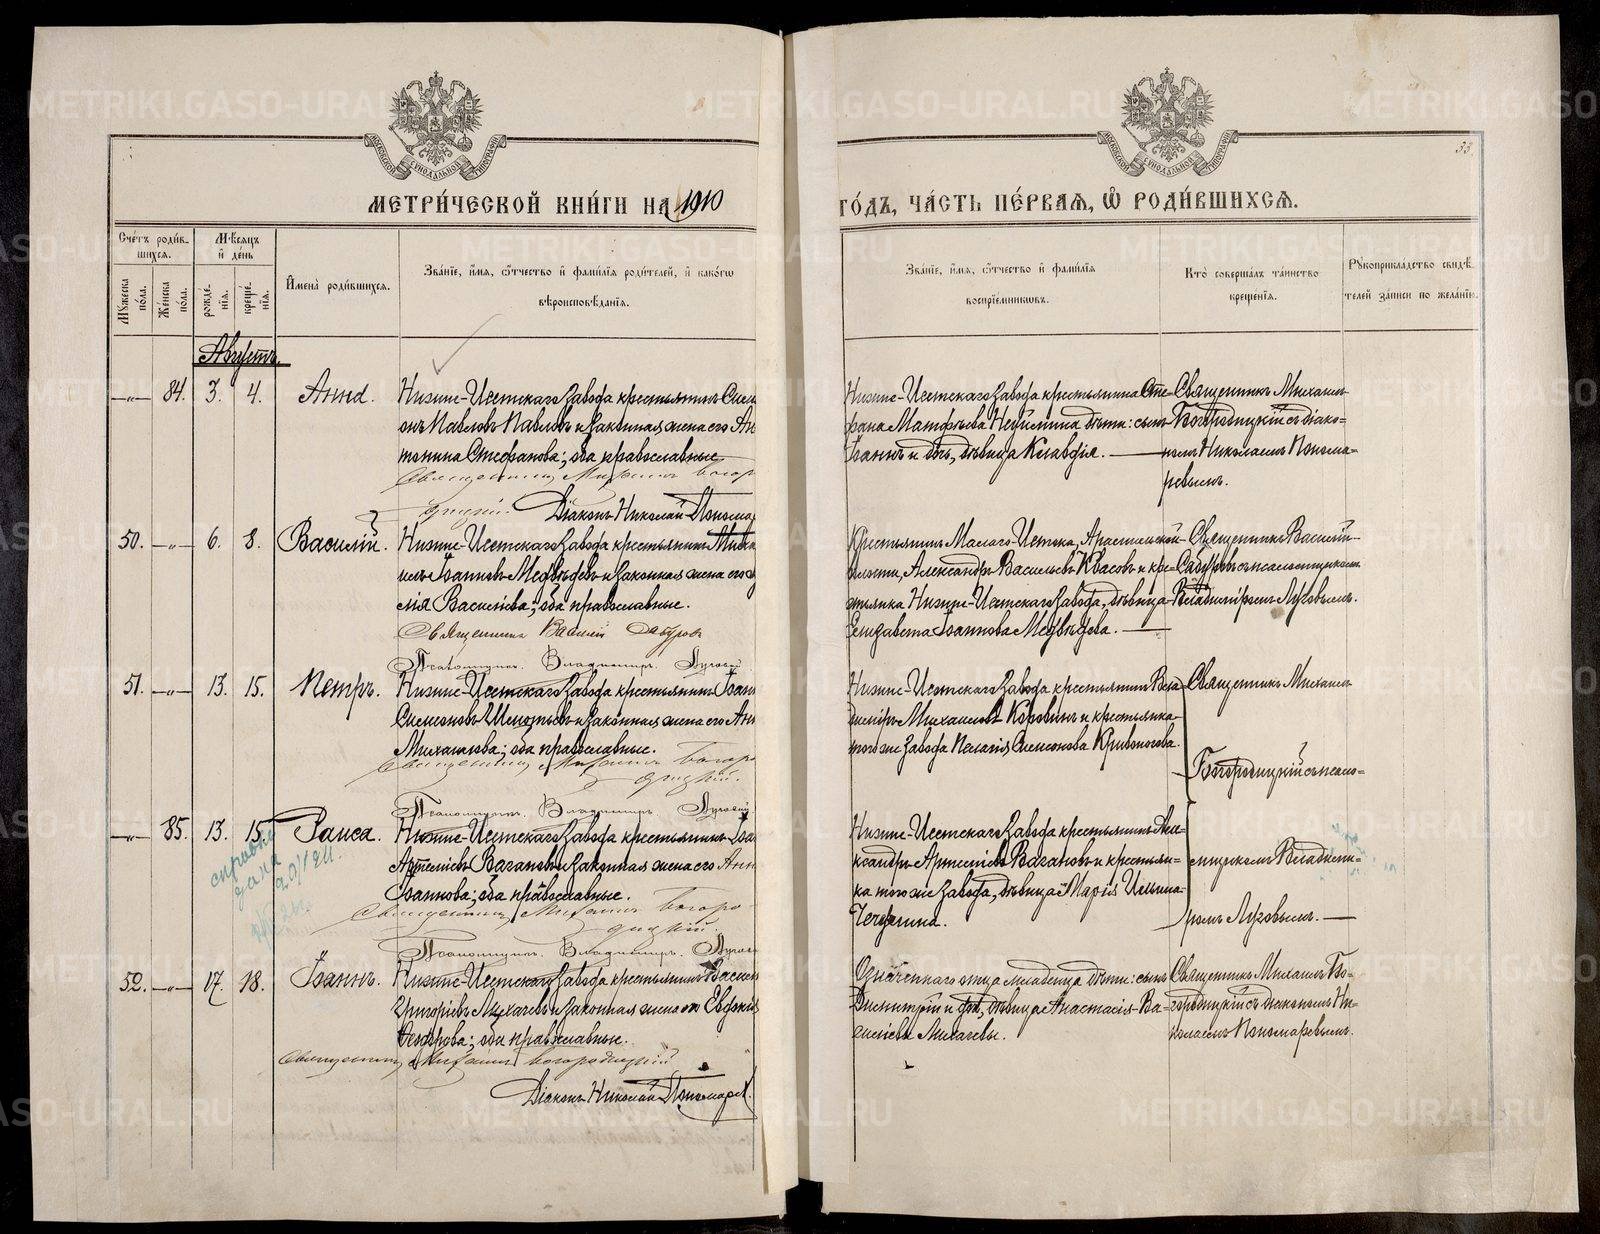 33.
МОСКОВСКОЙ СѴНОДАЛЬНОЙ ТИПОГРАФІИ
МОСКОВСКОЙ СѴНОДАЛЬНОЙ ТИПОГРАФІИ
МЕТРИ́ЧЕСКОЙ КНИ́ГИ НА 1910
ГО́ДЪ, ЧА́СТЬ ПЕ́РВАЯ, Ѡ РОДИ́ВШИХСЯ.
Сче́тъ роди́в-
шихся.
Мꙋжеска по́ла.
Же́нска по́ла.
Мѣ́сяцъ
и҆ де́нь
рожде́нія.
креще́нія.
И҆мена̀ роди́вшихся.
Зва́ніе, и҆́мя, ѻ҆́тчество и҆ фами́лія роди́телей, и҆ како́гѡ
вѣроисповѣ́данія.
Зва́ніе, и҆́мя, ѻ҆́тчество и҆ фами́лія
воспріе́мниковъ.
Кто̀ соверша́лъ та́инство
креще́нія.
Рꙋкоприкла́дство свидѣ́-
телей за́писи по жела́нію.
Августъ.
—„— 84. 3. 4. Анна.
Нижне-Исетскаго Завода крестьянинъ Симе
онъ Павловъ Павловъ и законная жена его Ан
тонина Стефанова; оба православные.
Священникъ Михаилъ Богоро
дицкій. Діаконъ Николай Понома
Нижне-Исетскаго Завода крестьянина Сте-
фана Матфѣева Неуймина дѣти: сынъ
Іоаннъ и дочь, дѣвица Клавдія. —
Священникъ Михаилъ
Богородицкій съ діако-
номъ Николаемъ Понома-
ревымъ.
50. —„— 6. 8. Василій.
Нижне-Исетскаго Завода крестьянинъ Миха
илъ Іоанновъ Медвѣдевъ и законная жена его
лія Василіева; оба православные.
Священникъ Василій Сабуровъ
Псаломщикъ Владимиръ Луговый
Крестьянинъ Малаго-Истока, Арамильской
волости, Александръ Васильевъ Квасовъ и кре-
стьянка Нижне-Исетскаго Завода, дѣвица
Елизавета Іоаннова Медвѣдева. —
Священникъ Василій
Сабуровъ съ псаломщикомъ
Владиміромъ Луговымъ.
51. —„— 13. 15. Петръ.
Нижне-Исетскаго Завода крестьянинъ Іоанн
Симеоновъ и законная жена его Анн
Михаилова; оба православные.
Священникъ Михаилъ Богоро
дицкій.
Псаломщикъ Владимиръ Луговый
Нижне-Исетскаго Завода крестьянинъ Вла-
диміръ Михаиловъ Коровинъ и крестьянка
того же завода Пелагія Симеонова Кривоногова.
Священникъ Михаилъ
Богородицкій съ псало-
—„— 85. 13. 15. Раиса.
справка
дана
20/I 21г.
Нижне-Исетскаго Завода крестьянинъ Іоа
Артеміевъ Вагановъ и законная жена его Анн
Іоаннова; оба православные.
Священникъ Михаилъ Богоро-
дицкій.
Псаломщикъ Владимиръ Лугов
Нижне-Исетскаго Завода крестьянинъ Але-
ксандръ Артеміевъ Вагановъ и крестьян-
ка того же завода, дѣвица Марія Ильина
мщикомъ Владимі-
ромъ Луговымъ. —
52. —„— 17. 18. Іоаннъ.
Нижне-Исетскаго Завода крестьянинъ Васил
Григоріевъ Михачевъ и законная жена его Евдокія
Ѳеодорова; оба православные.
Священникъ Михаилъ Богородицкій
Діаконъ Николай Пономарев.
Означеннаго отца младенца дѣти: сынъ
Димитрій и дочь, дѣвица Анастасія Ва-
силіевы Михачевы.
Священникъ Михаилъ Бо-
городицкій съ діакономъ Ни-
колаемъ Пономаревымъ.
METRIKI.GASO-URAL.RU